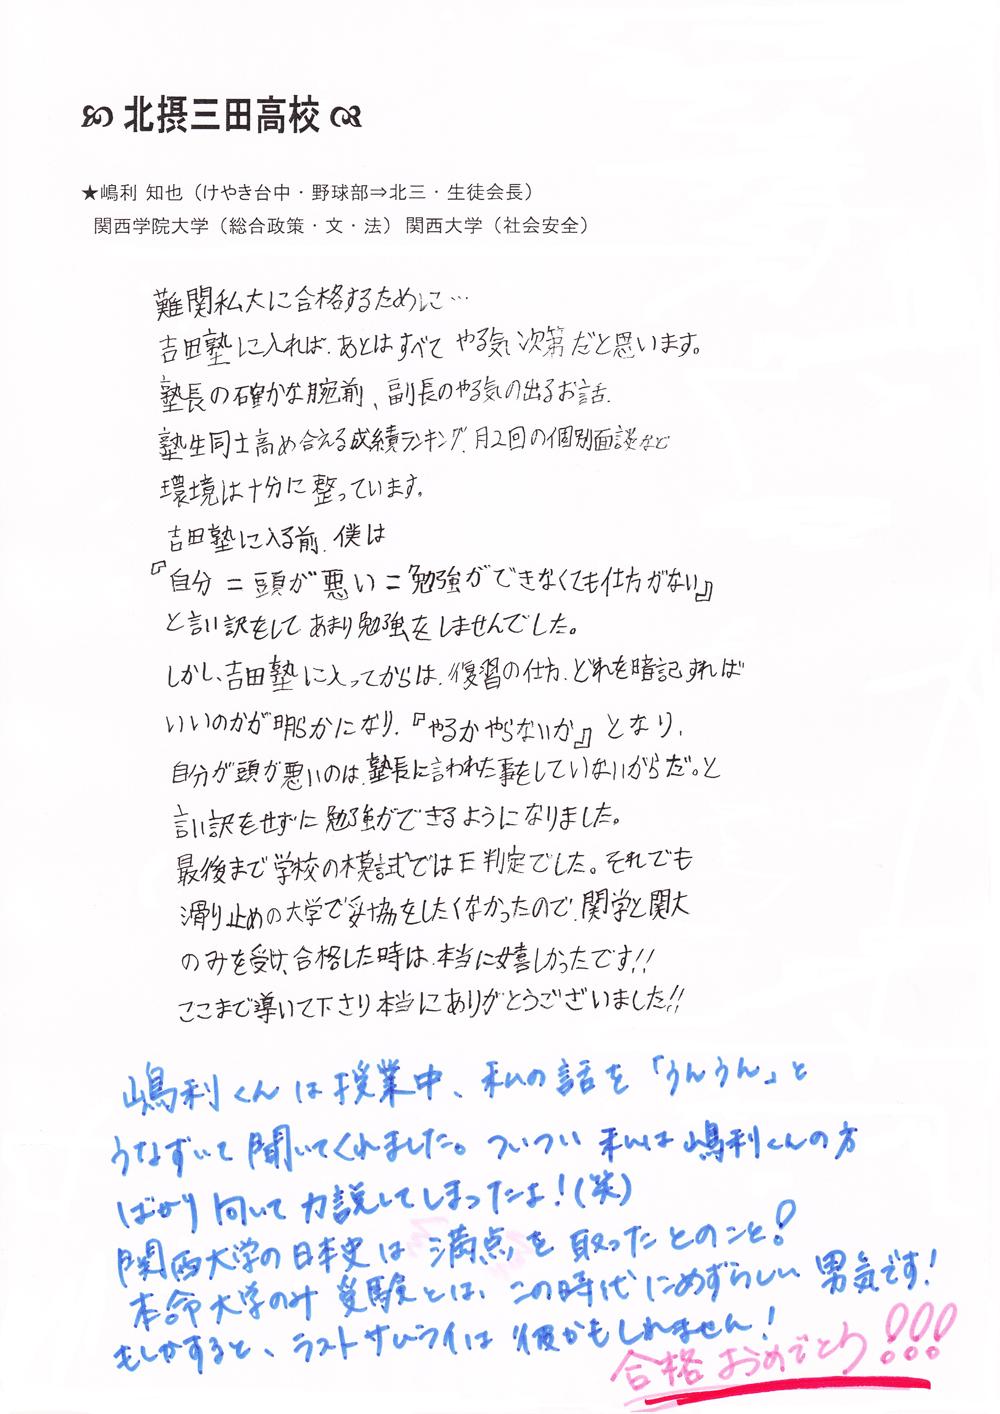 北摂三田高校
★嶋利 知也（けやき台中・野球部⇒北三・生徒会長）
関西学院大学（総合政策・文・法） 関西大学（社会安全）
難関私大に合格するために…
吉田塾に入れば、あとはすべて やる気次第だと思います。
塾長の確かな腕前、副長のやる気の出るお話、
塾生同士高め合える成績ランキング、月2回の個別面談など
環境は十分に整っています。
吉田塾に入る前、僕は
『自分＝頭が悪い＝勉強ができなくても仕方がない』
と言い訳をして あまり勉強をしませんでした。
しかし、吉田塾に入ってからは、復習の仕方、どれを暗記すれば
いいのかが明らかになり、『やるかやらないか』となり、
自分が頭が悪いのは、塾長に言われた事をしていないからだ。と
言い訳をせずに勉強ができるようになりました。
最後まで学校の模試ではE判定でした。それでも
滑り止めの大学で妥協をしたくなかったので、関学と関大
のみを受け、合格した時は、本当に嬉しかったです!!
ここまで導いて下さり本当にありがとうございました!!
嶋利くんは授業中、私の話を「うんうん」と
うなずいて聞いてくれました。ついつい私は嶋利くんの方
ばかり向いて力説してしまったよ！(笑)
関西大学の日本史は満点を取ったとのこと！
本命大学のみ受験とは、この時代にめずらしい男気です！
もしかすると、ラストサムライは彼かもしれません！
合格おめでとう!!!